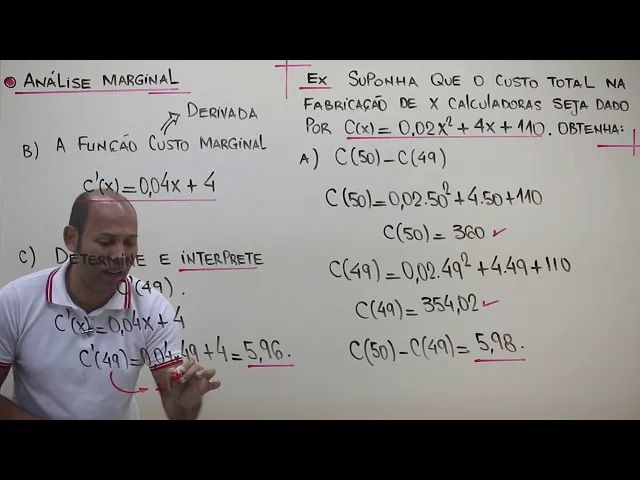 • ANÁLISE MARGINAL
DERIVADA
B) A FUNÇÃO CUSTO MARGINAL
C'(x) = 0,04x + 4
C) DETERMINE E INTERPRETE
C'(49).
C'(x) = 0,04x + 4
C'(49) = 0,04×49 + 4 = 5,96.
EX SUPONHA QUE O CUSTO TOTAL NA
FABRICAÇÃO DE X CALCULADORAS SEJA DADO
POR C(x) = 0,02x² + 4x + 110. OBTENHA:
A) C(50) – C(49)
C(50) = 0,02.50² + 4.50 + 110
C(50) = 360 ✓
C(49) = 0,02.49² + 4.49 + 110
C(49) = 354,02 ✓
C(50) – C(49) = 5,98.